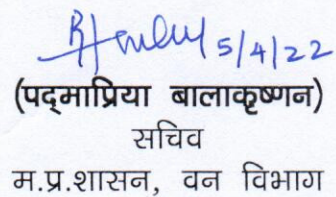 5/4/22
(पद्माप्रिया बालाकृष्णन)
सचिव
म.प्र.शासन, वन विभाग